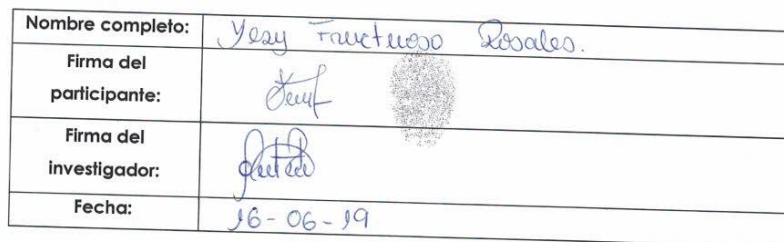 Nombre completo: Yesy Fructuoso Rosales.
Firma del
participante:
Firma del
investigador:
Fecha: 16-06-19